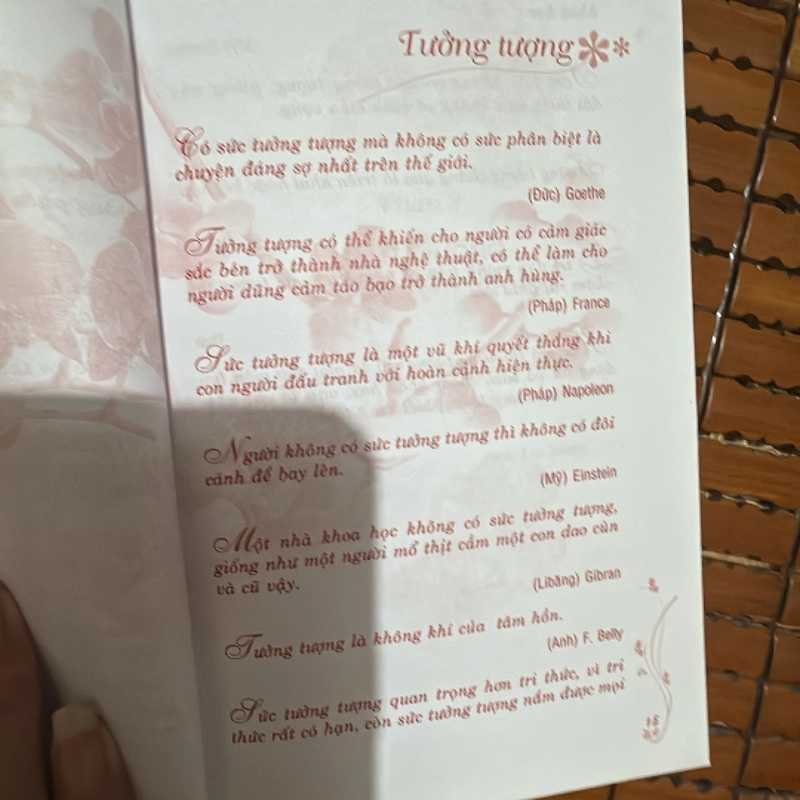 Tưởng tượng
Có sức tưởng tượng mà không có sức phân biệt là
chuyện đáng sợ nhất trên thế giới.
(Đức) Goethe
Tưởng tượng có thể khiến cho người có cảm giác
sắc bén trở thành nhà nghệ thuật, có thể làm cho
người dũng cảm táo bạo trở thành anh hùng.
(Pháp) France
Sức tưởng tượng là một vũ khí quyết thắng khi
con người đấu tranh với hoàn cảnh hiện thực.
(Pháp) Napoleon
Người không có sức tưởng tượng thì không có đôi
cánh để bay lên.
(Mỹ) Einstein
Một nhà khoa học không có sức tưởng tượng,
giống như một người mổ thịt cầm một con dao cùn
và cũ vậy.
(Libăng) Gibran
Tưởng tượng là không khí của tâm hồn.
(Anh) F. Belly
Sức tưởng tượng quan trọng hơn tri thức, vì tri
thức rất có hạn, còn sức tưởng tượng nắm được mọi